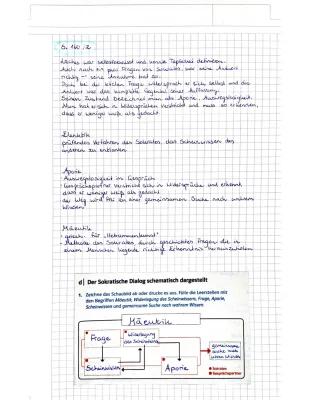 S. 140, 2
Laches war selbstbewusst und konnte Tapferkeit definieren.
Auch nach ein paar Fragen von Sokrates, war seine Antwort
richtig - seine Annahme hat so.
Doch bei der letzten Frage widersprach er sich selbst und die
Antwort war das komplette Gegenteil seiner Auffassung.
Diesen Zustand bezeichnet man als Aporie, Ausweglosigkeit.
Man hat sich in Widersprüchen verstrickt und muss so erkennen,
dass er weniger weiß, als gedacht.
Elenktik
prüfendes Verfahren des Sokrates, das Scheinwissen des
anderen zu entlarven
Aporie
- Ausweglosigkeit im Gespräch
- Gesprächspartner verstrickt sich in Widersprüche und erkennt,
dass er weniger weiß als gedacht
- der Weg wird frei für einer gemeinsamen Suche nach wahrem
Wissen
Mäeutik
- griech. für "Hebammenkunst"
- Methode des Sokrates durch geschicktes Fragen die in
einem Menschen liegende richtige Erkenntnis herauszuholen
d| Der Sokratische Dialog schematisch dargestellt
1. Zeichne das Schaubild ab oder drucke es aus. Fülle die Leerstellen mit
den Begriffen Mäeutik, Widerlegung des Scheinwissens, Frage, Aporie,
Scheinwissen und gemeinsame Suche nach wahrem Wissen.
Mäeutik
Frage
Widerlegung
des Scheinwissens
Scheinwissen
Aporie
gemeinsame
Suche nach
wahrem Wissen
Sokrates
Gesprächspartner